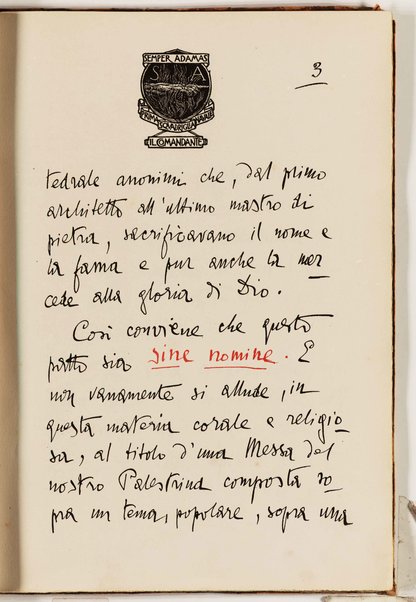 SEMPER ADAMAS
S A
PRIMA SQUADRIGLIA NAVALE
IL COMANDANTE
3
tedrale anonimi che, dal primo
architetto all'ultimo mastro di
pietra, sacrificavano il nome e
la fama e pur anche la mer-
cede alla gloria di Dio.
Così conviene che questo
patto sia sine nomine. E
non vanamente si allude, in
questa materia corale e religio-
sa, al titolo d'una Messa del
nostro Palestrina composta so-
pra un tema, popolare, sopra una